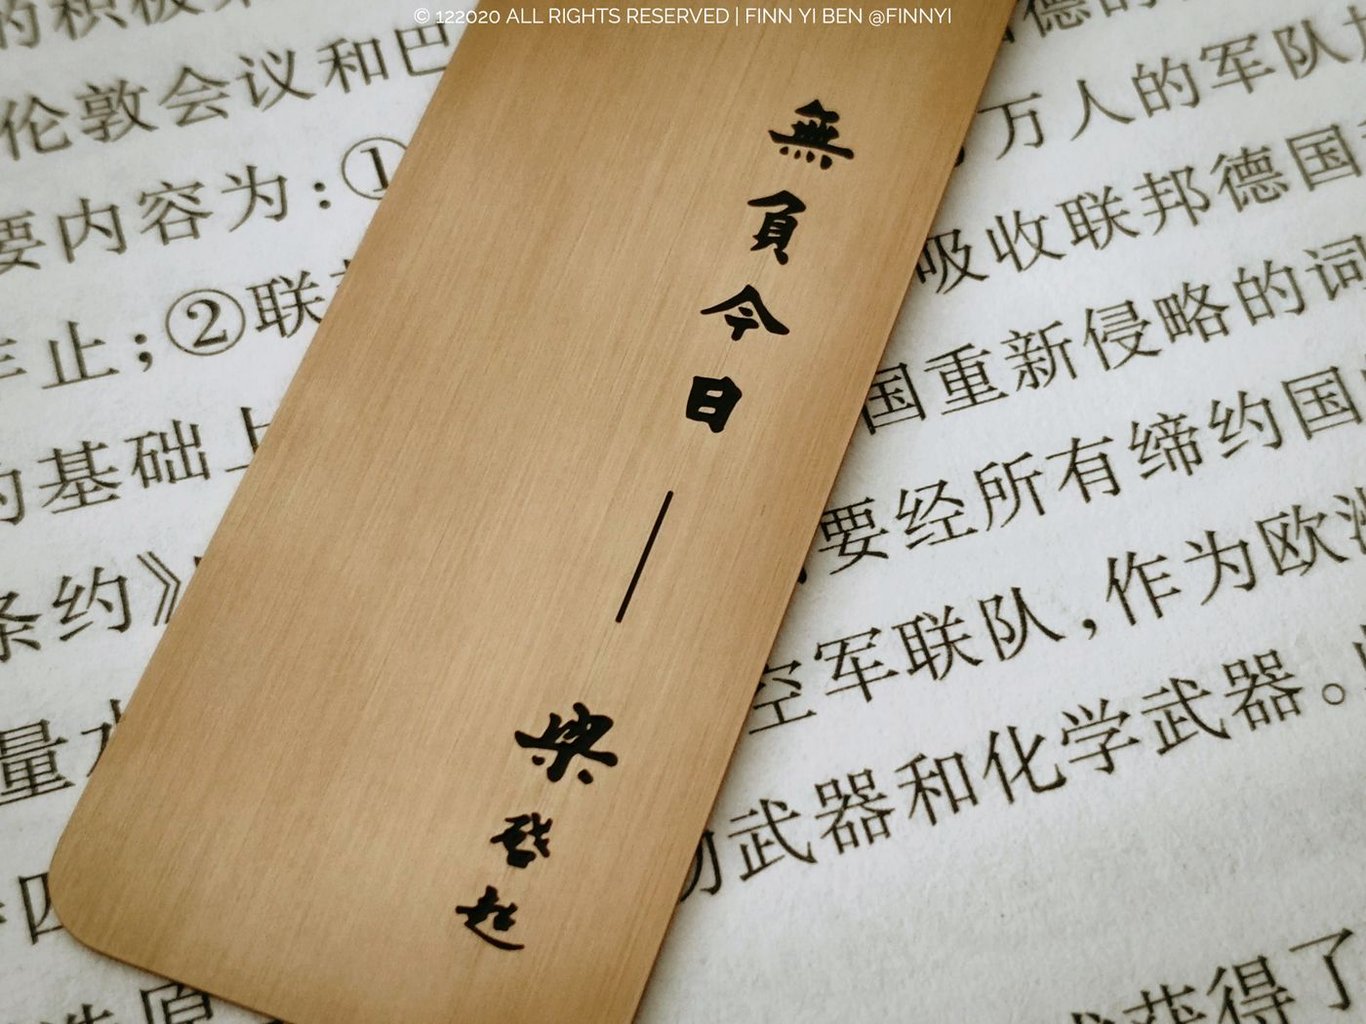 © 122020 ALL RIGHTS RESERVED | FINN YI BEN @FINNYI
無負今日——梁啓超
的积极
伦敦会议和巴
要内容为:①
年止;②联
的基础上
条约》
量
四
选原
德的
万人的军队
吸收联邦德国
国重新侵略的词
要经所有缔约国
空军联队,作为欧洲
武器和化学武器。
获得了